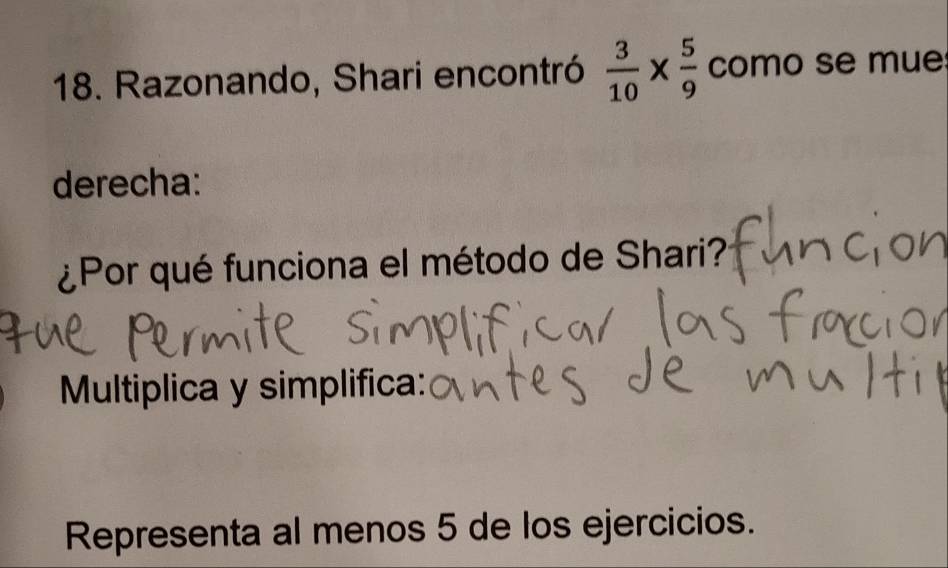 18. Razonando, Shari encontró 3/10 x 5/9 como se mue
derecha:
¿Por qué funciona el método de Shari? funcion
que permite simplificar las fraccion
Multiplica y simplifica: antes de multip
Representa al menos 5 de los ejercicios.